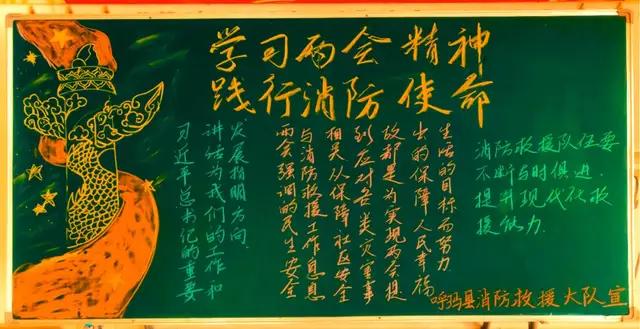 学习两会精神
践行消防使命
习近平总书记的重要
讲话为我们的工作和
发展指明方向
两会强调的民生安全
与消防救援工作息息
相关从保障社区安全
到应对各类灾害事
故都是为实现两会提
出的保障人民幸福
生活的目标而努力
消防救援队伍要
不断与时俱进.
提升现代化救
援能力.
呼玛县消防救援大队宣